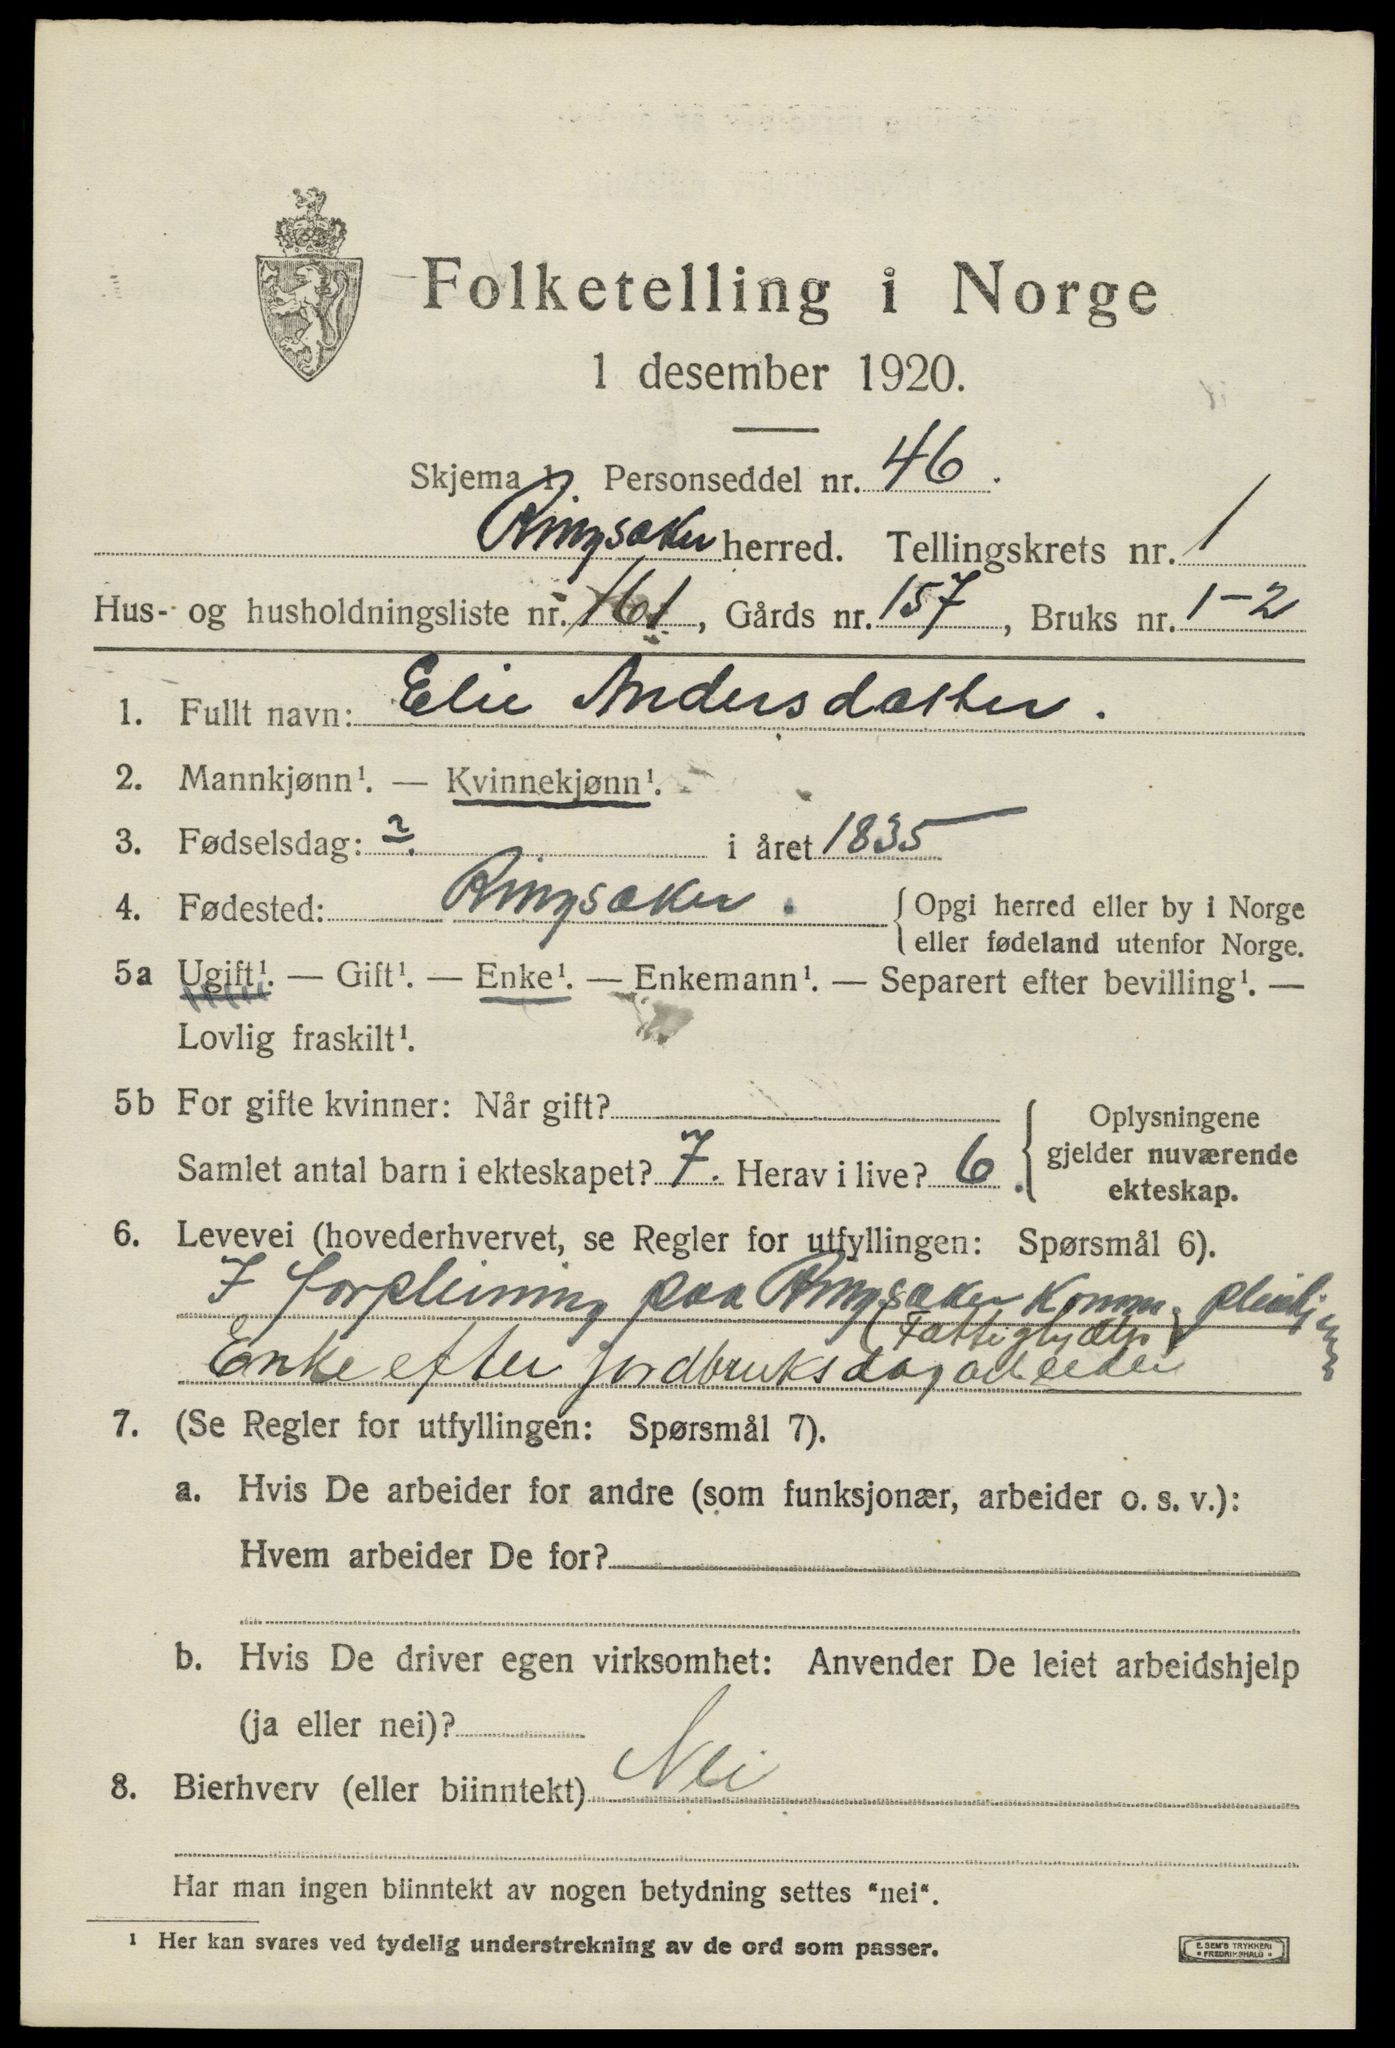 Folketelling i Norge
1 desember 1920.
Skjema 1. Personseddel nr. 46.
Ringsaker herred. Tellingskrets nr. 1
Hus- og husholdningsliste nr. 161, Gårds nr. 157, Bruks nr. 1-2
1. Fullt navn: Elie Andersdatter.
2. Mannkjønn¹. — Kvinnekjønn¹.
3. Fødselsdag: ?. i året 1835
4. Fødested: Ringsaker. { Opgi herred eller by i Norge
eller fødeland utenfor Norge.
5a Ugift¹. — Gift¹. — Enke¹. — Enkemann¹. — Separert efter bevilling¹. —
Lovlig fraskilt¹.
5b For gifte kvinner: Når gift?
Samlet antal barn i ekteskapet? 7. Herav i live? 6.
Oplysningene
gjelder nuværende
ekteskap.
6. Levevei (hovederhvervet, se Regler for utfyllingen: Spørsmål 6).
I forpleining paa Ringsaker Komm. pleiehj
(Fattiglydelse)
Enke efter jordbruksdagarbeider
7. (Se Regler for utfyllingen: Spørsmål 7).
a. Hvis De arbeider for andre (som funksjonær, arbeider o. s. v.):
Hvem arbeider De for?
b. Hvis De driver egen virksomhet: Anvender De leiet arbeidshjelp
(ja eller nei)?
8. Bierhverv (eller biinntekt) Nei
Har man ingen biinntekt av nogen betydning settes "nei".
¹ Her kan svares ved tydelig understrekning av de ord som passer.
E. SEM'S TRYKKERI
• FREDRIKSHALD •